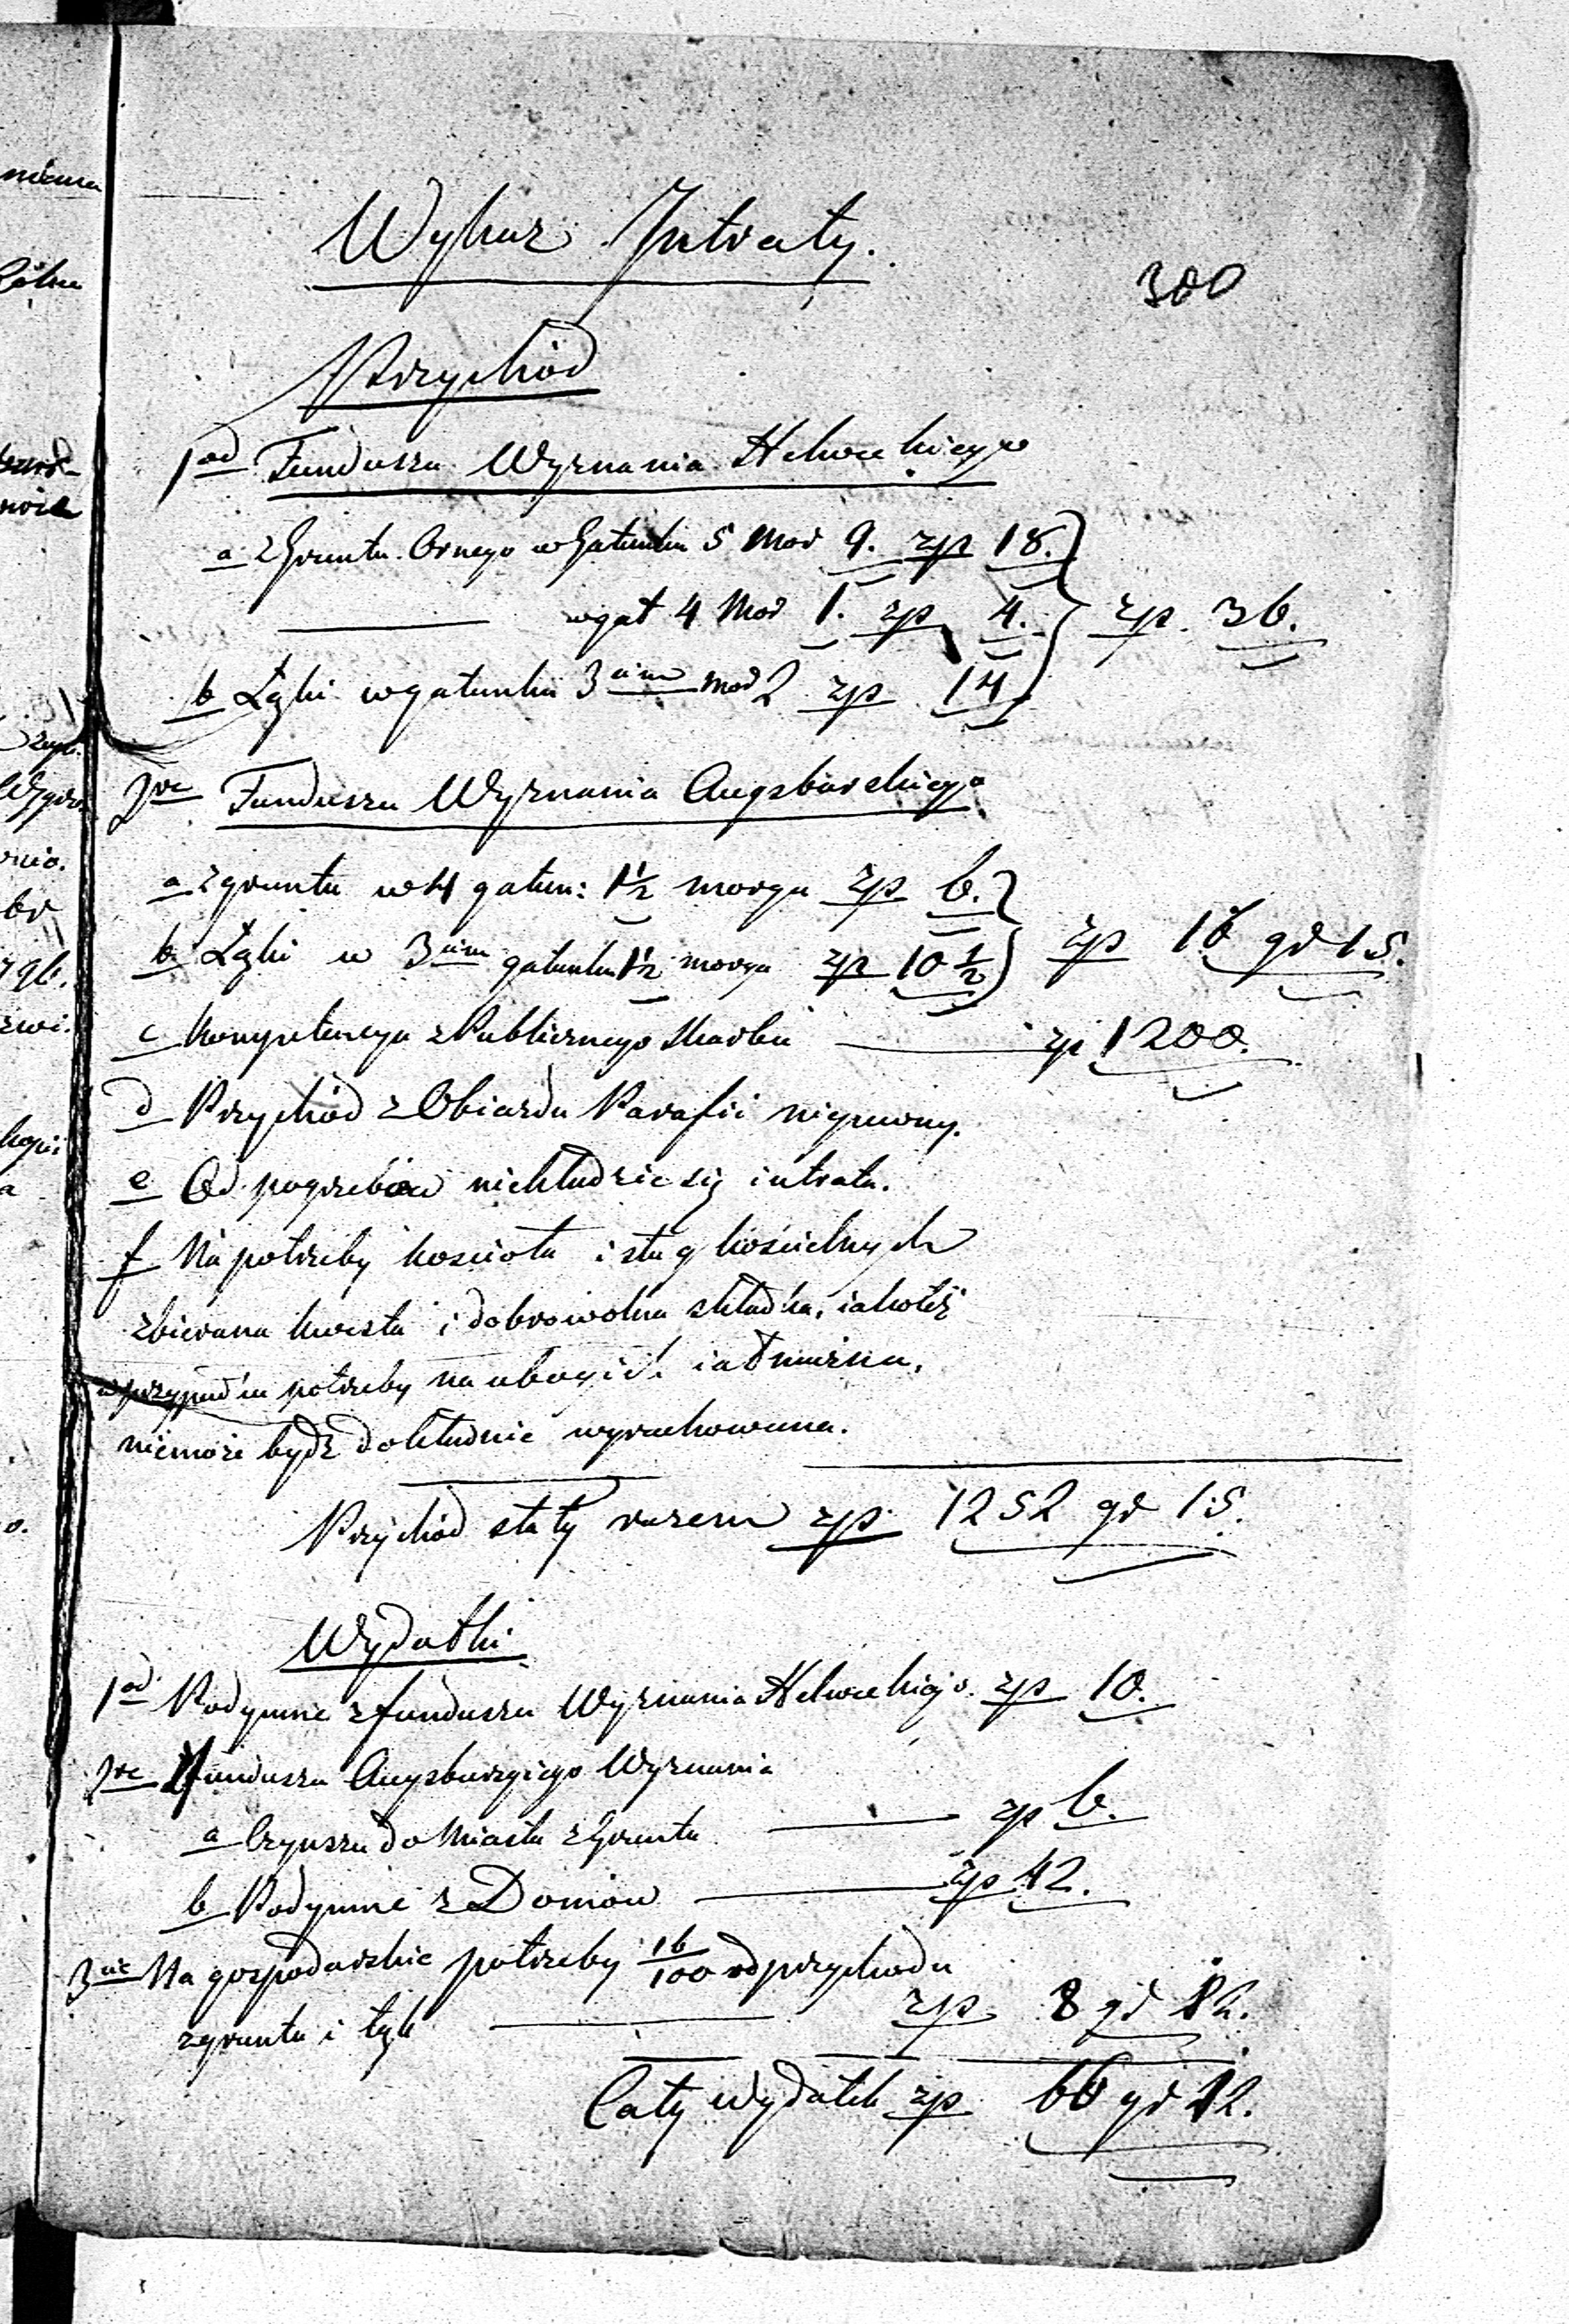 Wykaz Intraty.
300
Przychód
1od Funduszu Wyznania Helweckiego
a z Gruntu Ornego w Gatunku 5 Mor 9. zp 18.
w gat 4 Mor 1. zp 4. zp. 36.
b Łąki w gatunku 3cim mor 2 zp 14
2re Funduszu Wyznania Augsburskiego
a z gruntu w 4 gatun: 1½ morga zp 6.
b. Łąki w 3cim gatunku 1½ morga zp 10½ zp 16 gr 15.
c Kompetencya z Publicznego Skarbu zp 1200.
d Przychód z Obiazdu Parafii niepewny.
e Od pogrzebów niekładzie się intrata.
f Na potrzeby koscioła i sług kościelnych
zbierana kwesta i dobrowolna składka, iakoteż
w przypadku potrzeby na ubogich iałmużna,
niemoże bydz dokładnie wyrachowana.
Przychód stały razem zp 1252 gr 15.
Wydatki
1od Podymne z funduszu Wyznania Helweckiego. zp 10.
2re Z funduszu Augsburgiego Wyznania
a Czynszu do Miasta z Gruntu zp 6.
b Podymne z Domów zp 42.
3cie Na gospodarskie potrzeby 16/100 od przychodu
z gruntu i łąk zp 8 gr 12.
Cały wydatek zp 66 gr 12.